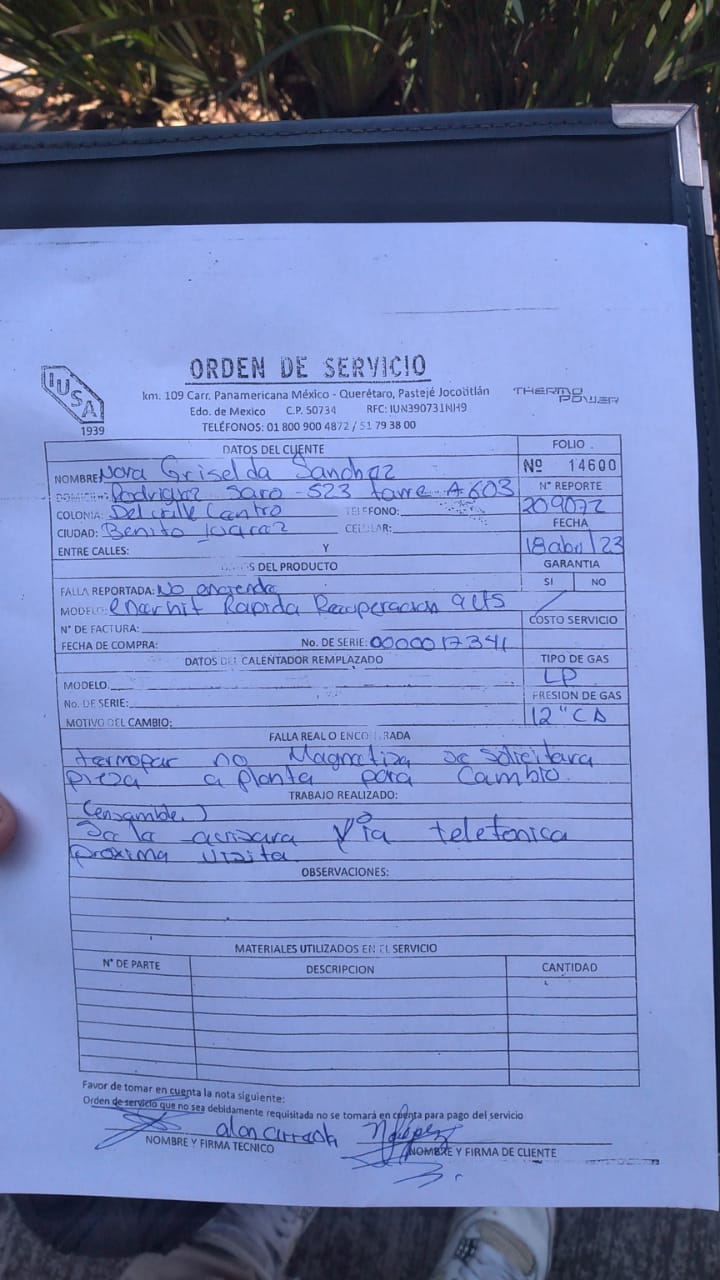 ORDEN DE SERVICIO
IUSA
1939
km. 109 Carr. Panamericana México - Querétaro, Pastejé Jocotitlán
Edo. de Mexico C.P. 50734 RFC: IUN390731NH9
TELÉFONOS: 01 800 900 4872 / 51 79 38 00
THERMO POWER
DATOS DEL CLIENTE
FOLIO
Nº 14600
NOMBRE: Nora Griselda Sanchez
Nº REPORTE
Rodriguez Saro - 523 torre A-603
209072
COLONIA: Del valle Centro TELEFONO:
FECHA
CIUDAD: Benito Juarez CELULAR:
18 abril 23
ENTRE CALLES: Y
DATOS DEL PRODUCTO
GARANTIA
FALLA REPORTADA: No enciende
SI NO
MODELO: Rapida Recuperacion 9 Lts
COSTO SERVICIO
N° DE FACTURA:
FECHA DE COMPRA: No. DE SERIE: 0000017341
DATOS DEL CALENTADOR REMPLAZADO
TIPO DE GAS
LP
MODELO.
PRESION DE GAS
No. DE SERIE:
12"
MOTIVO DEL CAMBIO:
FALLA REAL O ENCONTRADA
termopar no Magnetiza se solicitara
pieza a planta para Cambio.
TRABAJO REALIZADO:
(ensamble.)
Se le avisara Vía telefonica
proxima visita
OBSERVACIONES:
MATERIALES UTILIZADOS EN EL SERVICIO
N° DE PARTE DESCRIPCION CANTIDAD
Favor de tomar en cuenta la nota siguiente:
Orden de servicio que no sea debidamente requisitada no se tomará en cuenta para pago del servicio
NOMBRE Y FIRMA TECNICO
NOMBRE Y FIRMA DE CLIENTE